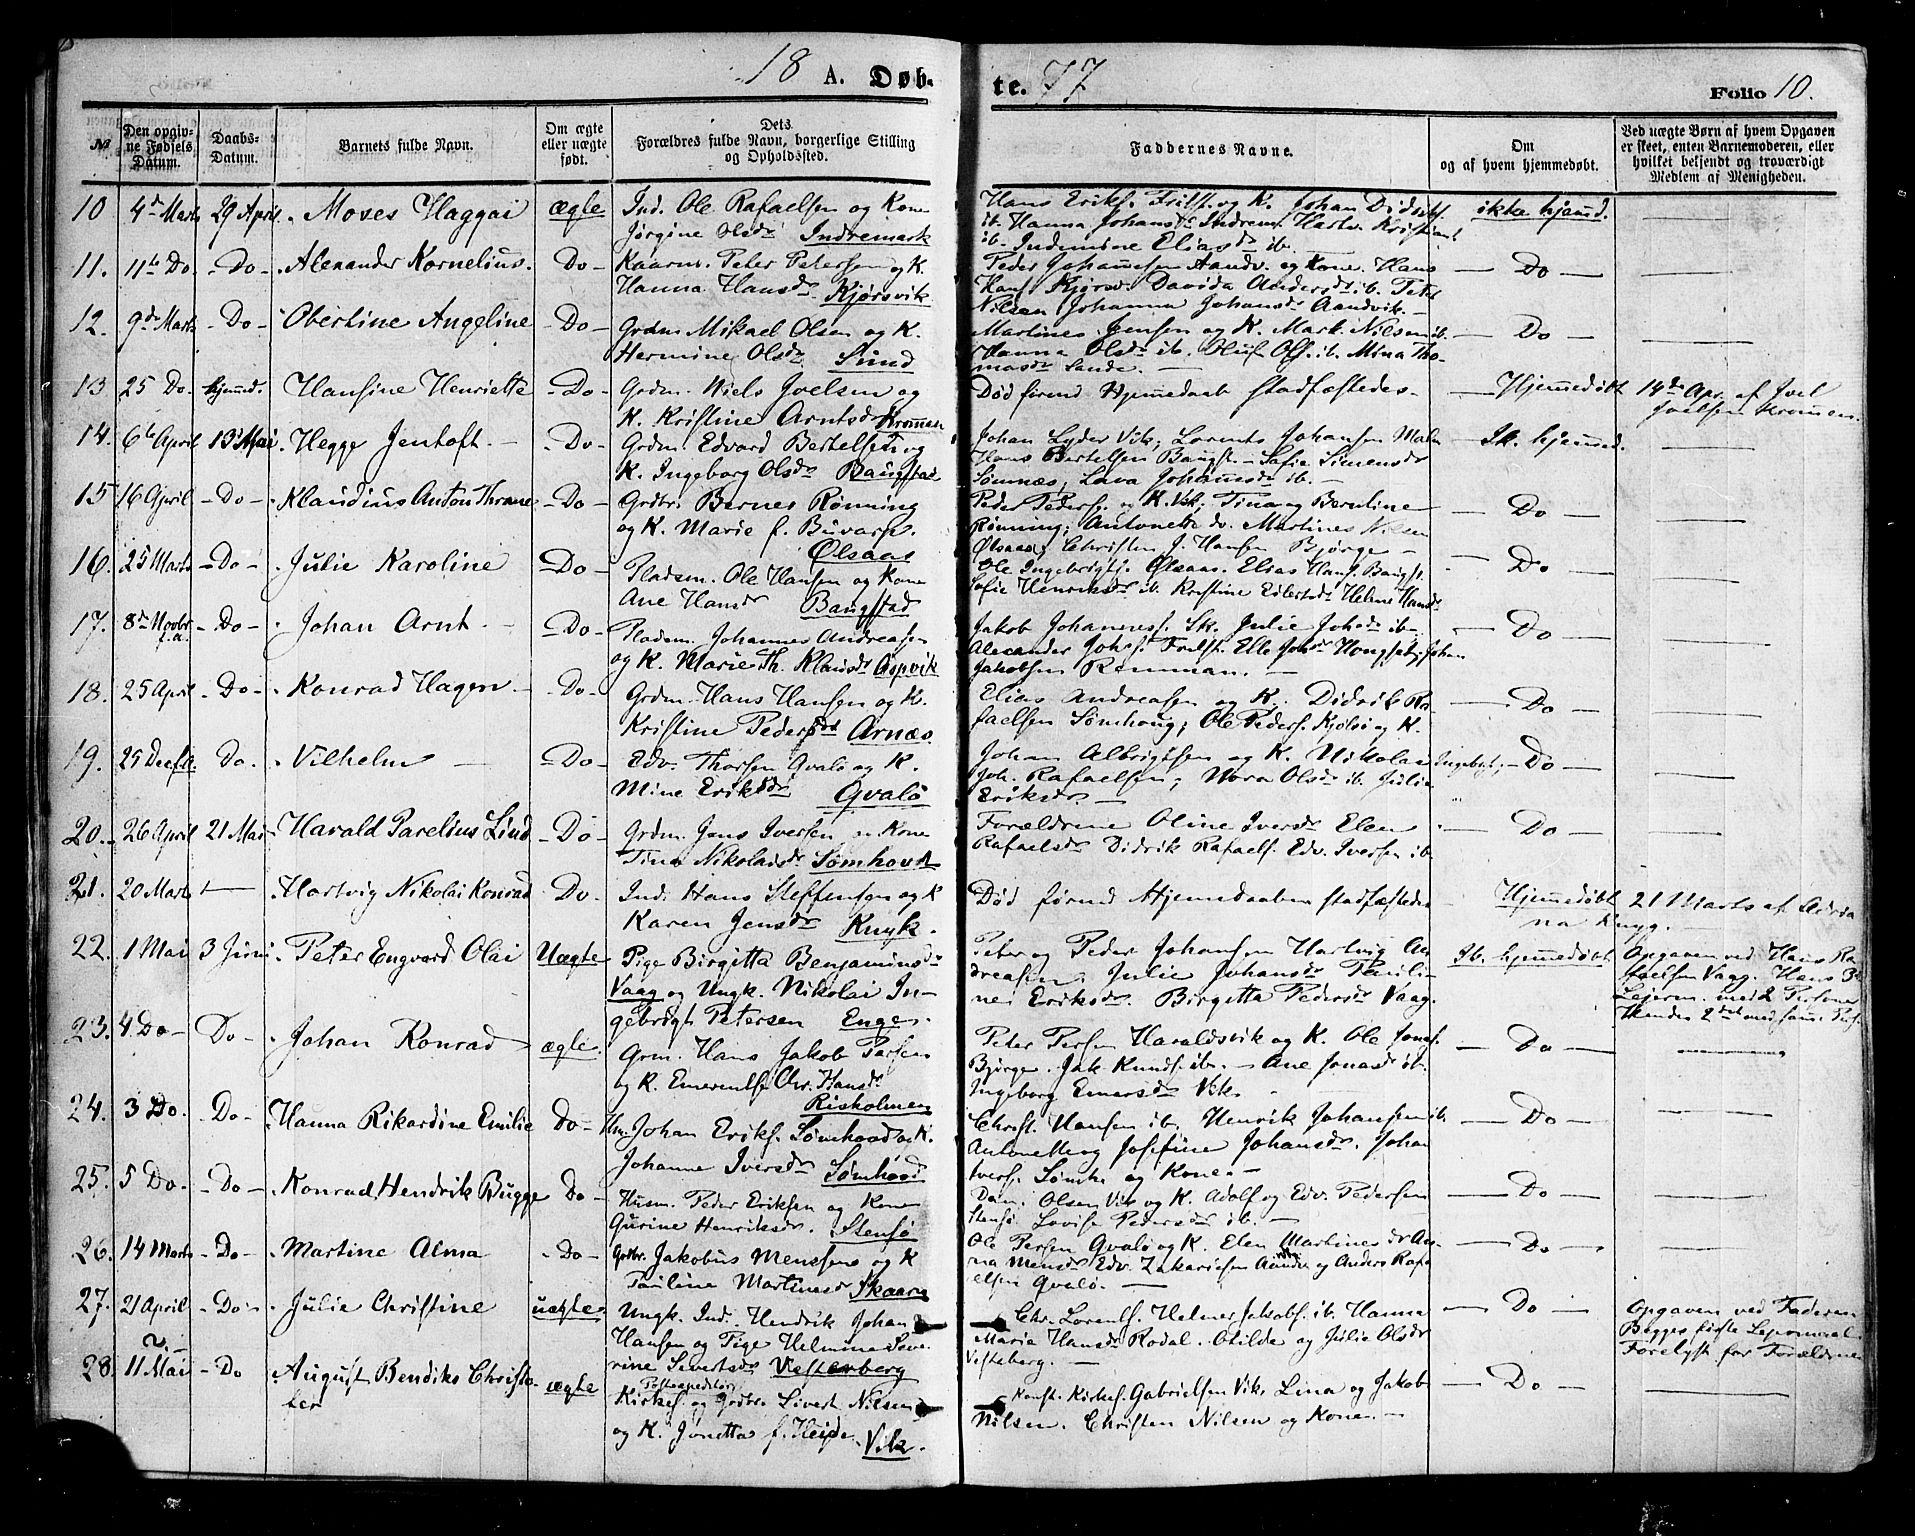 18 A. Døbte. 77
Folio 10.
№
Den opgivne Fødsels Datum.
Daabs-Datum.
Barnets fulde Navn.
Om ægte eller uægte født.
Forældres fulde Navn, Dets borgerlige Stilling og Opholdssted.
Faddernes Navne.
Om og af hvem hjemmedøbt.
Ved uægte Børn af hvem Opgaven er skeet, enten Barnemoderen, eller hvilket bekjendt og troværdigt Medlem af Menigheden.
10 4de Marts 29 April. Moses Haggai ægte Ind. Ole Rafaelsen og Kone
Jørgine Olsdr Indremark
Hans Eriks. Johan
ib. Hanna Johansdr
ib. Indemine Eliasdr ib.
ikke hjemmd.
11. 11te Do -Do- Alexander Kornelius. Do- Kaarm. Peter Petersen og K.
Hanna Hansdr Kjørsvik
Peder Johannesen Aandv. og Kone. Hans
Hans. Kjørsv. Davida Andersdr ib. Peter
Nilsen Johanna Johansdr Aandvik.-
— Do —
12. 9de Marts -Do- Obertine Angeline -Do- Grdm. Mikael Olsen og K.
Hermine Olsdr Sund
Martines Jensen og K. Mark. Nilsen ib.
Hanna Olsdr ib. Oluf Ols. ib. Mina Tho-
masdr Sande. —
— Do —
13 25 Do. hjemmd. Hansine Henriette -Do- Grdm. Niels Joelsen og
K. Kristine Arntsdr Kromman
Død forend Hjemmedaab stadfæstedes-
— Hjemmedøbt 14de Apr. af Joel
Joelsen Krommen.
14. 6te April 13 Mai Hegge Jentoft. — -Do- Grdm. Edvard Bertelsen og
K. Ingeborg Olsdr Bangstad
Johan Lyder Vik; Lorents Johansen
Hans Bertelsen Bangst. - Sofie Simensdr
Sømnæs, Lava Johannsdr ib. -
— Ik. hjemmd.
15 16 April -Do- Klaudius Anton Thrane -Do- Grdbr. Bernes Rønning
og K. Marie f. Buvarp.
Ølsaas
Peder Peders. og K. Vik; Tina og Berntine
Rønning; Antonette dv. Martines Nilsen
Ølsaas; Christen J. Hansen Bjørge —
— Do —
16. 25 Marts -Do- Julie Karoline -Do- Pladsm. Ole Hansen og Kone
Ane Hansdr Bangstad
Ole Ingebrigts. Ølsaas. Elias Hans. Bangst.
Sofie Henriksdr ib. Kristine Eilertsdr Helene Hansdr
— Do —
17. 8de Novbr f.a. -Do- Johan Arnt. — -Do Pladsm. Johannes Andreasen
og K. Marie Th. Klausdr Aspvik
Jakob Johannes. Sk. Julie Johsdr ib.
Alexander Johs. Johan
Jakobsen Remman. —
— Do
18. 25 April -Do- Konrad Hagen — -Do- Grdm. Hans Hansen og K.
Kristine Pedersdr Arnæs.
Elias Andreassen og K. Didrik Ra-
faelsen Sømhoug; Ole Peders. Kjølsø og K.
—. Do
19. 25 Decbr f.a. Do. Vilhelm — -Do- Edv. Thorsen Gvalø og K.
Mine Eriksdr Gvalø
Johan Albrigtsen og K. Nikolai Ingebrt;
Joh. Rafaelsen; Nora Olsdr ib. Julie
Eriksdr. —
- Do —
20.- 26 April 21 Mai Harald Parelius Lind -Do- Grdm. Jens Iversen og Kone
Tina Nikolaisdr Sømhovd
Forældrene Oline Iversdr Elen
Rafaelsdr Didrik Rafaels. Edv. Iversen ib.
— Do —
21. 20 Marts — Hartvig Nikolai Konrad Do- Ind. Hans Steffensen og K
Karen Jensdr Knyk.
Død førend Hjemmedaaben stadfæstedes
Hjemmedøbt 21 Marts af Adria
na Knyg.
22. 1 Mai 3 Juni Peter Engvard Olai Uægte Pige Birgitta Benjaminsdr
Vaag og Ungk. Nikolai In-
gebrigt Petersen Enge.
Peter og Peder Johansen Hartvig An
dreasen Julie Johansdr Pauli-
ne Eriksdr. Birgitta Pedersdr Vaag.
Ik. hjemmedøbt Opgaven ved Hans Ra
faelsen Vaag. Hans 3die
Leierm. med 2 Personer
Hendes 2det med samme Pers.
23. 4 Do- Do- Johan Konrad ægte. Grm. Hans Jakob Persen
og K. Emerentse Chr. Hansdr
Risholmen
Peter Persen Haraldsvik og K. Ole Jons.
Bjørge. Jak. Knuds. ib. - Ane Jonasdr ib.
Ingeborg Emersdr Vik.
— Do —
24. 3 Do. -Do- Hanna Rikardine Emilie Do- Hm. Johan Eriks. Sømhovd og K.
Johanne Iversdr Sømhovd
Christ. Hansen ib. Henrik Johansen ib.
Antonette og Josefine Johansdr. Johan
Ivers. Sømh. og Kone. -
— Do —
25. 5 Do. -Do- Konrad Hendrik Bugge Do- Husm. Peder Eriksen og Kone
Gurine Henriksdr. Stensø
Dani. Olsen Vik og K. Adolf og Edv. Pedersen
Stensø. Lovise Pedersdr ib. -
— Do
26. 14 Marts -Do- Martine Alma -Do- Grdbr. Jakobus Menssens og K
Pauline Martinesdr Skaaren
Ole Persen Gvalø og K. Elen Martinesdr An-
na Mensdr Edv. Zakariesen Aandv. og Anders Rafa
elsen Gvalø. —
— Do —
27. 21 April -Do- Julie Christine uægte. Ungk. Ind. Hendrik Johan
Hansen og Pige Helmine Seve-
rine Sivertsdr Vesterberg
Chr. Lorents. Helmer Jakobs. ib. Hanna
Maria Hansdr Rodal. Otilde og Julie Olsdr
Vesteberg. —
— Do — Opgaven ved Faderen
Begges første Leiermaal
Forelyst for Forældrene
28. 11 Mai -Do August Bendiks Christo-
fer ægte Postexpeditør
Kirkes. og Grdbr. Sivert Nilsen
og K. Jonetta f. Heide Vik.
Konst. Kirkes. Gabrielsen Vik, Lina og Jakob
Nilsen. Christen Nilsen og Kone. —
— Do —